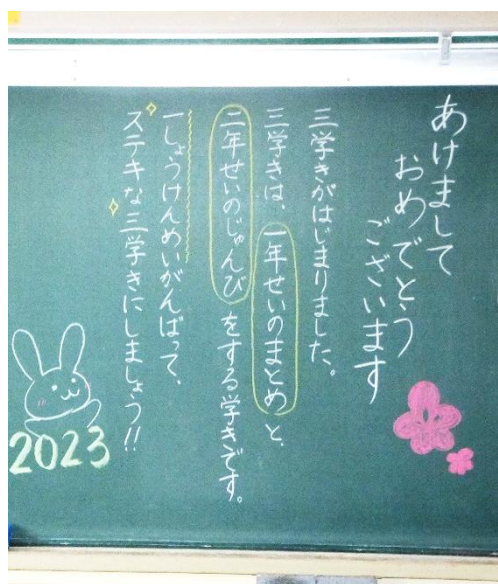 あけまして
おめでとう
ございます
三学きがはじまりました。
三学きは、一年せいのまとめと、
二年せいのじゅんびをする学きです。
一しょうけんめいがんばって、
ステキな三学きにしましょう!!
2023